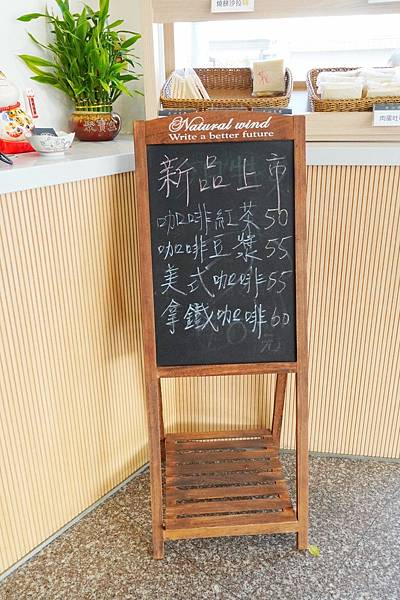 燒餅沙拉
Natural wind
Write a better future
新品上市
咖啡紅茶50
咖啡豆漿55
美式咖啡55
拿鐵咖啡60
元
肉蛋吐